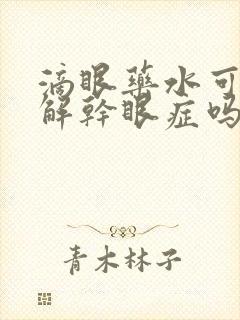 滴眼藥水可
解幹眼症吗
青木林子